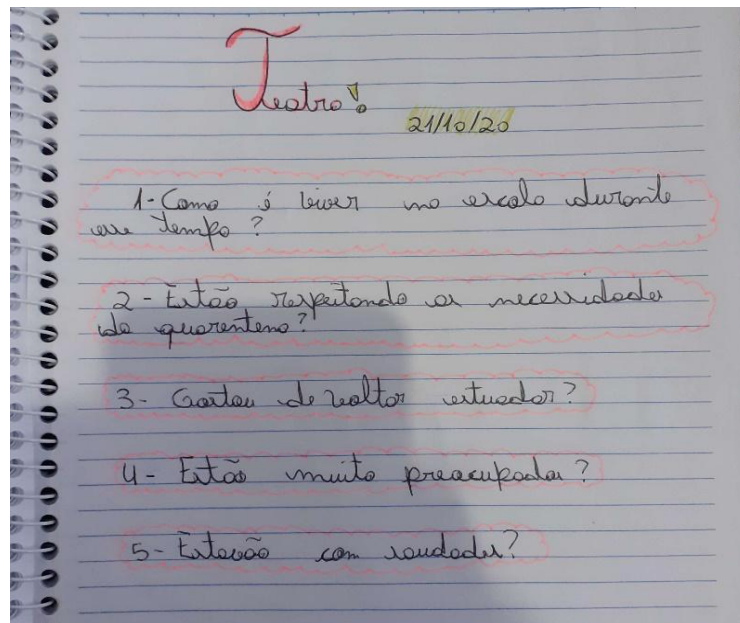 Teatro!
21/10/20
1- Como é viver na escola durante
esse tempo?
2- Estão respeitando as necessidades
da quarentena?
3- Gostou de voltar estudar?
4- Estão muito preocupados?
5- Estavão com saudades?